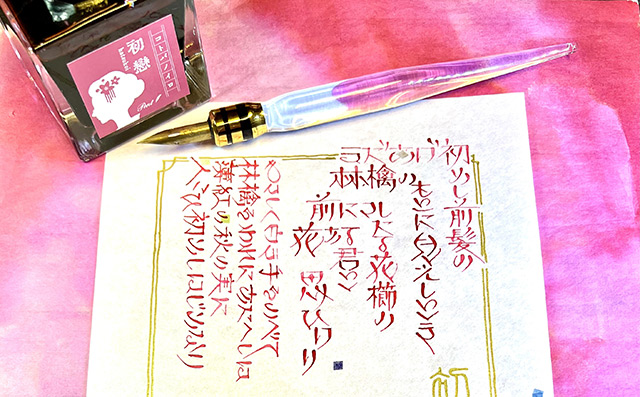 コトバノイロ
初戀
まだあげ初めし前髪の
林檎のもとに見えしとき
前にさしたる花櫛の
花ある君と思ひけり
やさしく白き手をのべて
林檎をわれにあたへしは
薄紅の秋の実に
人こひ初めしはじめなり
初